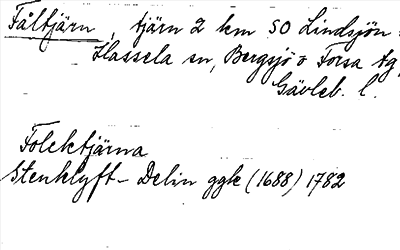 Fåltjärn, tjärn 2 km SO Lindsjön
Hassela sn, Bergsjö o Forsa tg,
Gävleb. l.
Folektjärna
Stenklyft- Delin ggk (1688) 1782